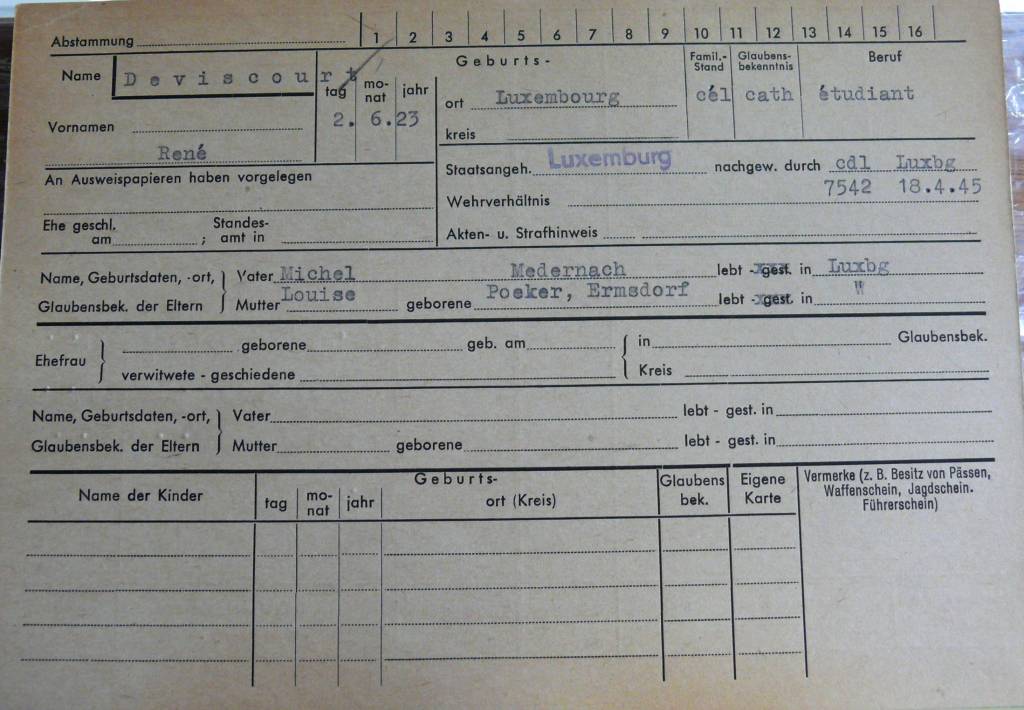 Abstammung 1 2 3 4 5 6 7 8 9 10 11 12 13 14 15 16
Name Deviscourt
Geburts-
tag mo-nat jahr
2. 6.23
ort Luxembourg
kreis
Famil.-Stand
cél
Glaubens-bekenntnis
cath
Beruf
étudiant
Vornamen
René
Staatsangeh. Luxemburg nachgew. durch cdl Luxbg
7542 18.4.45
An Ausweispapieren haben vorgelegen
Wehrverhältnis
Ehe geschl. am ; Standes-amt in
Akten- u. Strafhinweis
Name, Geburtsdaten, -ort, Vater Michel Medernach lebt - gest. in Luxbg
Glaubensbek. der Eltern Mutter Louise geborene Poeker, Ermsdorf lebt - gest. in "
Ehefrau geborene geb. am in Glaubensbek.
verwitwete - geschiedene Kreis
Name, Geburtsdaten, -ort, Vater lebt - gest. in
Glaubensbek. der Eltern Mutter geborene lebt - gest. in
Name der Kinder
Geburts-
tag mo-nat jahr ort (Kreis)
Glaubens bek.
Eigene Karte
Vermerke (z. B. Besitz von Pässen,
Waffenschein, Jagdschein.
Führerschein)